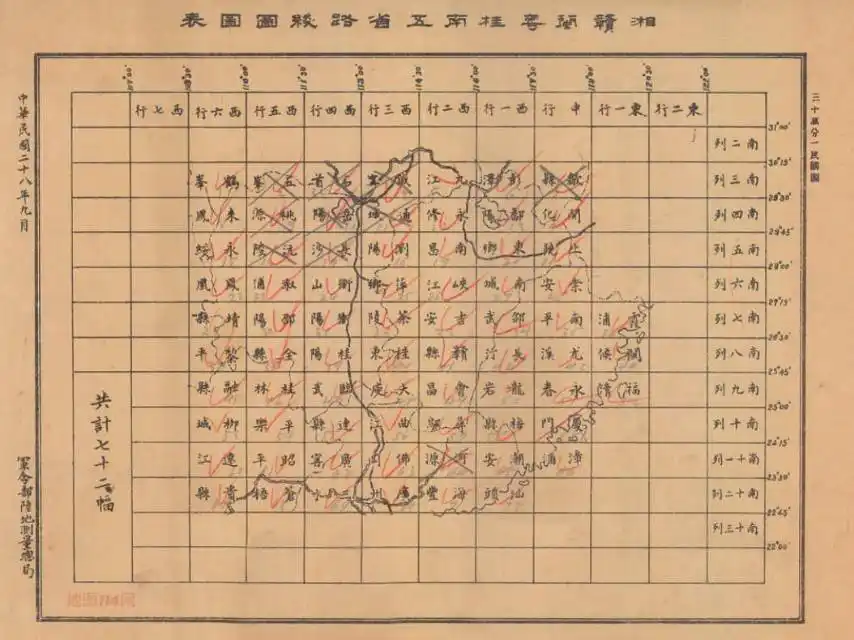 湘贛閩粵桂南五省路綫圖圖表
三十萬分一民國圖
107°00' 108°30' 110°00' 111°30' 113°00' 114°30' 116°00' 117°30' 119°00' 120°30' 122°00'
東二行 東一行 中行 西一行 西二行 西三行 西四行 西五行 西六行 西七行
31°00'
南二列
30°15'
南三列 歙縣 彭澤 九江 咸寧 石首 五峯 鶴峯
29°30'
南四列 開化 鄱陽 永修 通城 岳陽 桃源 來鳳
28°45'
南五列 上饒 東鄉 南昌 瀏陽 長沙 沅陵 永綏
28°00'
南六列 崇安 南城 峽江 萍鄉 衡山 漵浦 鳳凰
27°15'
南七列 霞浦 南平 邵武 吉安 茶陵 衡陽 邵陽 靖縣
26°30'
南八列 閩侯 尤溪 長汀 贛縣 桂東 桂陽 全縣 黎平
25°45'
南九列 福清 永春 龍巖 會昌 大庾 臨武 桂林 融縣
25°00'
南十列 廈門 梅縣 尋鄔 曲江 連縣 平樂 柳城
24°15'
南十一列 漳浦 潮安 河源 佛岡 廣寧 昭平 遷江
23°30'
南十二列 汕頭 海豐 廣州 三水 蒼梧 貴縣
22°45'
南十三列
22°00'
共計七十二幅
中華民國二十八年九月
軍令部陸地測量總局